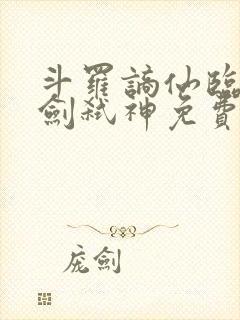 斗羅謫仙臨
劍弒神免費
庞劍